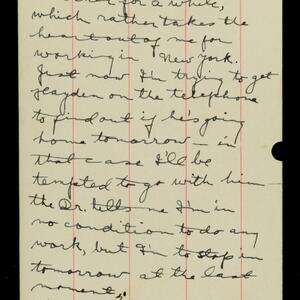 for a while,
which rather takes the
heart out of me for
working in New York.
Just now I'm trying to get
Hayden on the telephone
to find out if he's going
home tomorrow — in
that case I'll be
tempted to go with him
the Dr. tells me I'm in
no condition to do any
work, but I'm to stop in
tomorrow at the last
moment,